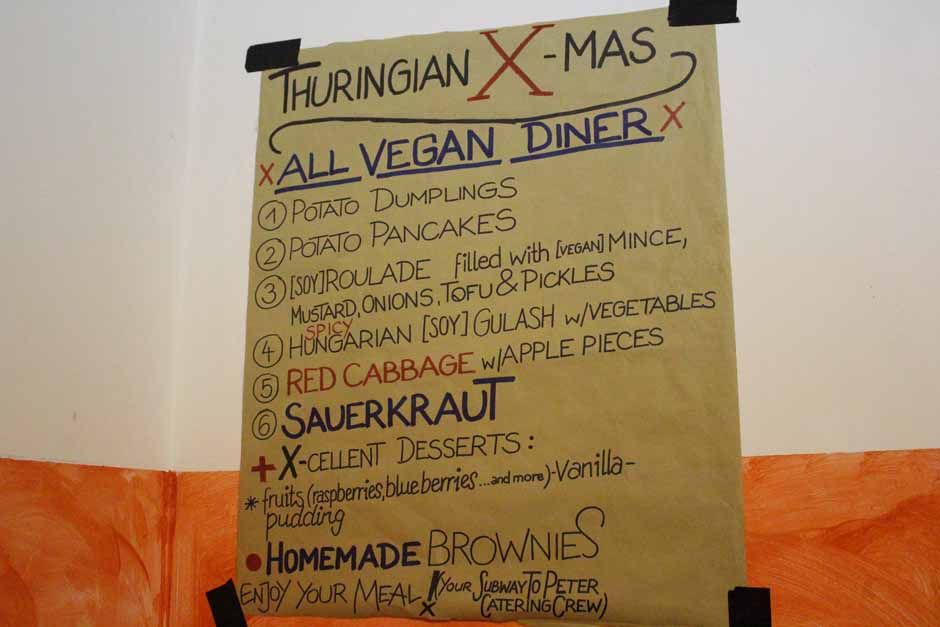 THURINGIAN X-MAS
x ALL VEGAN DINER x
① POTATO DUMPLINGS
② POTATO PANCAKES
③ [SOY] ROULADE filled with [VEGAN] MINCE,
MUSTARD, ONIONS, TOFU & PICKLES
SPICY
④ HUNGARIAN [SOY] GULASH w/VEGETABLES
⑤ RED CABBAGE w/APPLE PIECES
⑥ SAUERKRAUT
+ X-CELLENT DESSERTS:
* fruits (raspberries, blueberries ...and more)-Vanilla-
pudding
• HOMEMADE BROWNIES
ENJOY YOUR MEAL! x (YOUR SUBWAY TO PETER
CATERING CREW)